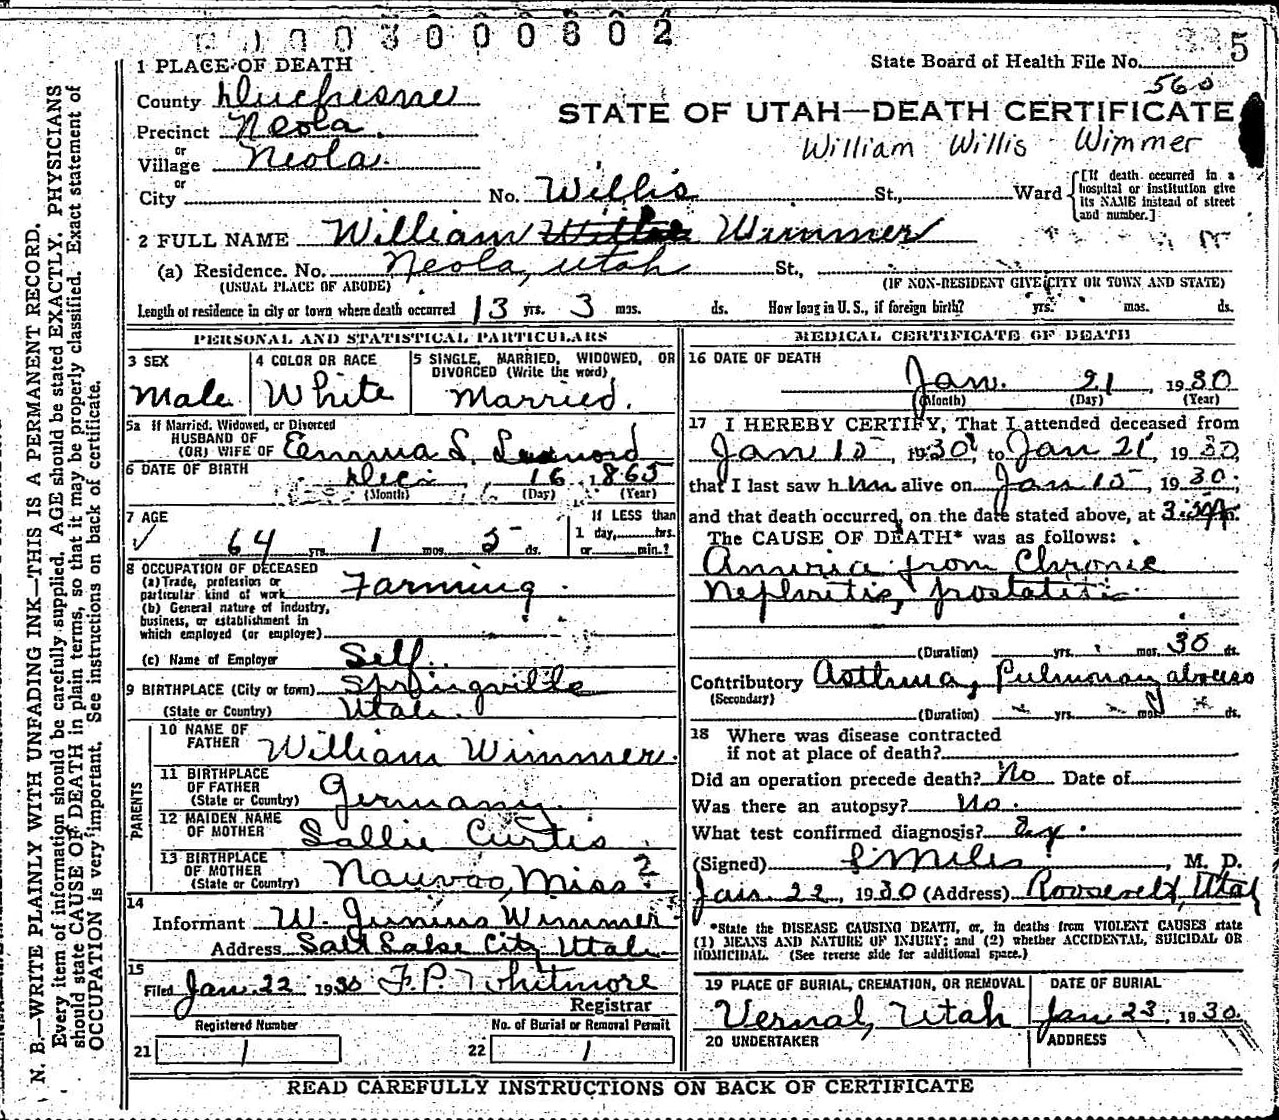 0 1 0 0 3 0 0 0 8 0 2
5
State Board of Health File No.
560
1 PLACE OF DEATH
County Duchesne
STATE OF UTAH—DEATH CERTIFICATE
Precinct Neola
William Willis Wimmer
or
Village Neola
or
City No. Willis St., Ward [If death occurred in a hospital or institution give its NAME instead of street and number.]
2 FULL NAME William Wimmer
(a) Residence. No. Neola, Utah St.,
(USUAL PLACE OF ABODE) (IF NON-RESIDENT GIVE CITY OR TOWN AND STATE)
Length of residence in city or town where death occurred 13 yrs. 3 mos. ds. How long in U.S., if foreign birth? yrs. mos. ds.
PERSONAL AND STATISTICAL PARTICULARS
3 SEX
Male
4 COLOR OR RACE
White
5 SINGLE, MARRIED, WIDOWED, OR
DIVORCED (Write the word)
Married.
5a If Married, Widowed, or Divorced
HUSBAND OF
(OR) WIFE OF Emma L.
6 DATE OF BIRTH Dec. 16 1865
(Month) (Day) (Year)
7 AGE
64 yrs. 1 mos. 5 ds.
If LESS than
1 day, hrs.
or min.?
8 OCCUPATION OF DECEASED
(a) Trade, profession or
particular kind of work Farming
(b) General nature of industry,
business, or establishment in
which employed (or employer)
(c) Name of Employer Self.
9 BIRTHPLACE (City or town) Springville
(State or Country) Utah
PARENTS
10 NAME OF
FATHER William Wimmer.
11 BIRTHPLACE
OF FATHER
(State or Country) Germany
12 MAIDEN NAME
OF MOTHER Sallie Curtis
13 BIRTHPLACE
OF MOTHER
(State or Country) Nauvoo, Miss?
14
Informant W. Junius Wimmer
Address Salt Lake City Utah
15
Filed Jan. 22 1930 F. P. Whitmore
Registrar
Registered Number
No. of Burial or Removal Permit
21 1
22 1
MEDICAL CERTIFICATE OF DEATH
16 DATE OF DEATH
Jan. 21, 1930
(Month) (Day) (Year)
17 I HEREBY CERTIFY, That I attended deceased from
Jan 15, 1930, to Jan 21, 1930,
that I last saw him alive on Jan 15, 1930;
and that death occurred, on the date stated above, at m.
The CAUSE OF DEATH* was as follows:
Anuria from Chronic
Nephritis, prostatitis
(Duration) yrs. mos. 30 ds.
Contributory Asthma, Pulmonary abscess
(Secondary)
(Duration) yrs. mos. ds.
18 Where was disease contracted
if not at place of death?
Did an operation precede death? No Date of
Was there an autopsy? No.
What test confirmed diagnosis?
(Signed) Miles, M. D.
Jan 22, 1930 (Address) Roosevelt, Utah
*State the DISEASE CAUSING DEATH, or, in deaths from VIOLENT CAUSES state
(1) MEANS AND NATURE OF INJURY; and (2) whether ACCIDENTAL, SUICIDAL OR
HOMICIDAL. (See reverse side for additional space.)
19 PLACE OF BURIAL, CREMATION, OR REMOVAL
Vernal, Utah
DATE OF BURIAL
Jan 23, 1930.
20 UNDERTAKER
ADDRESS
READ CAREFULLY INSTRUCTIONS ON BACK OF CERTIFICATE
N. B.—WRITE PLAINLY WITH UNFADING INK—THIS IS A PERMANENT RECORD.
Every item of information should be carefully supplied. AGE should be stated EXACTLY. PHYSICIANS
should state CAUSE OF DEATH in plain terms, so that it may be properly classified. Exact statement of
OCCUPATION is very important. See instructions on back of certificate.